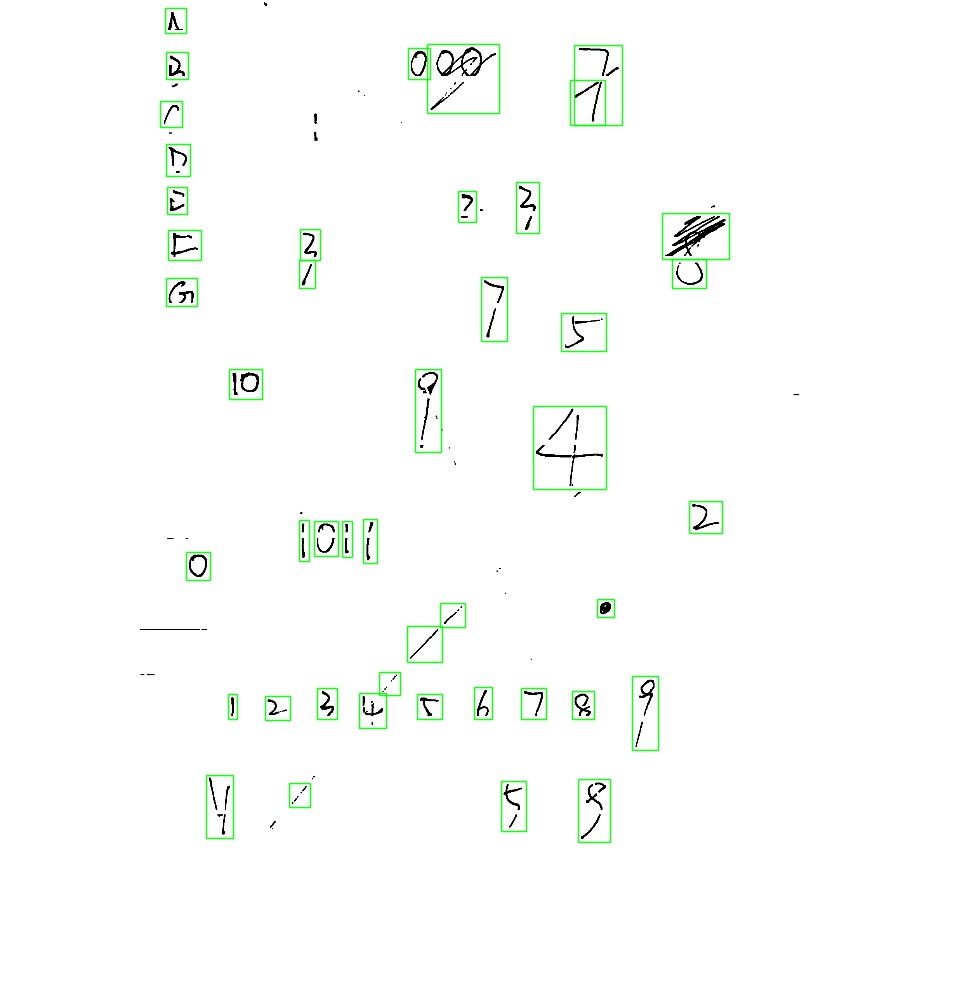 A
B 000 7
C 1
D
E 2. 3,
F 3
G 0
7
5
10 9
4
2
1011
0
1 2 3 4 5 6 7 8 9
Y 5, 8,